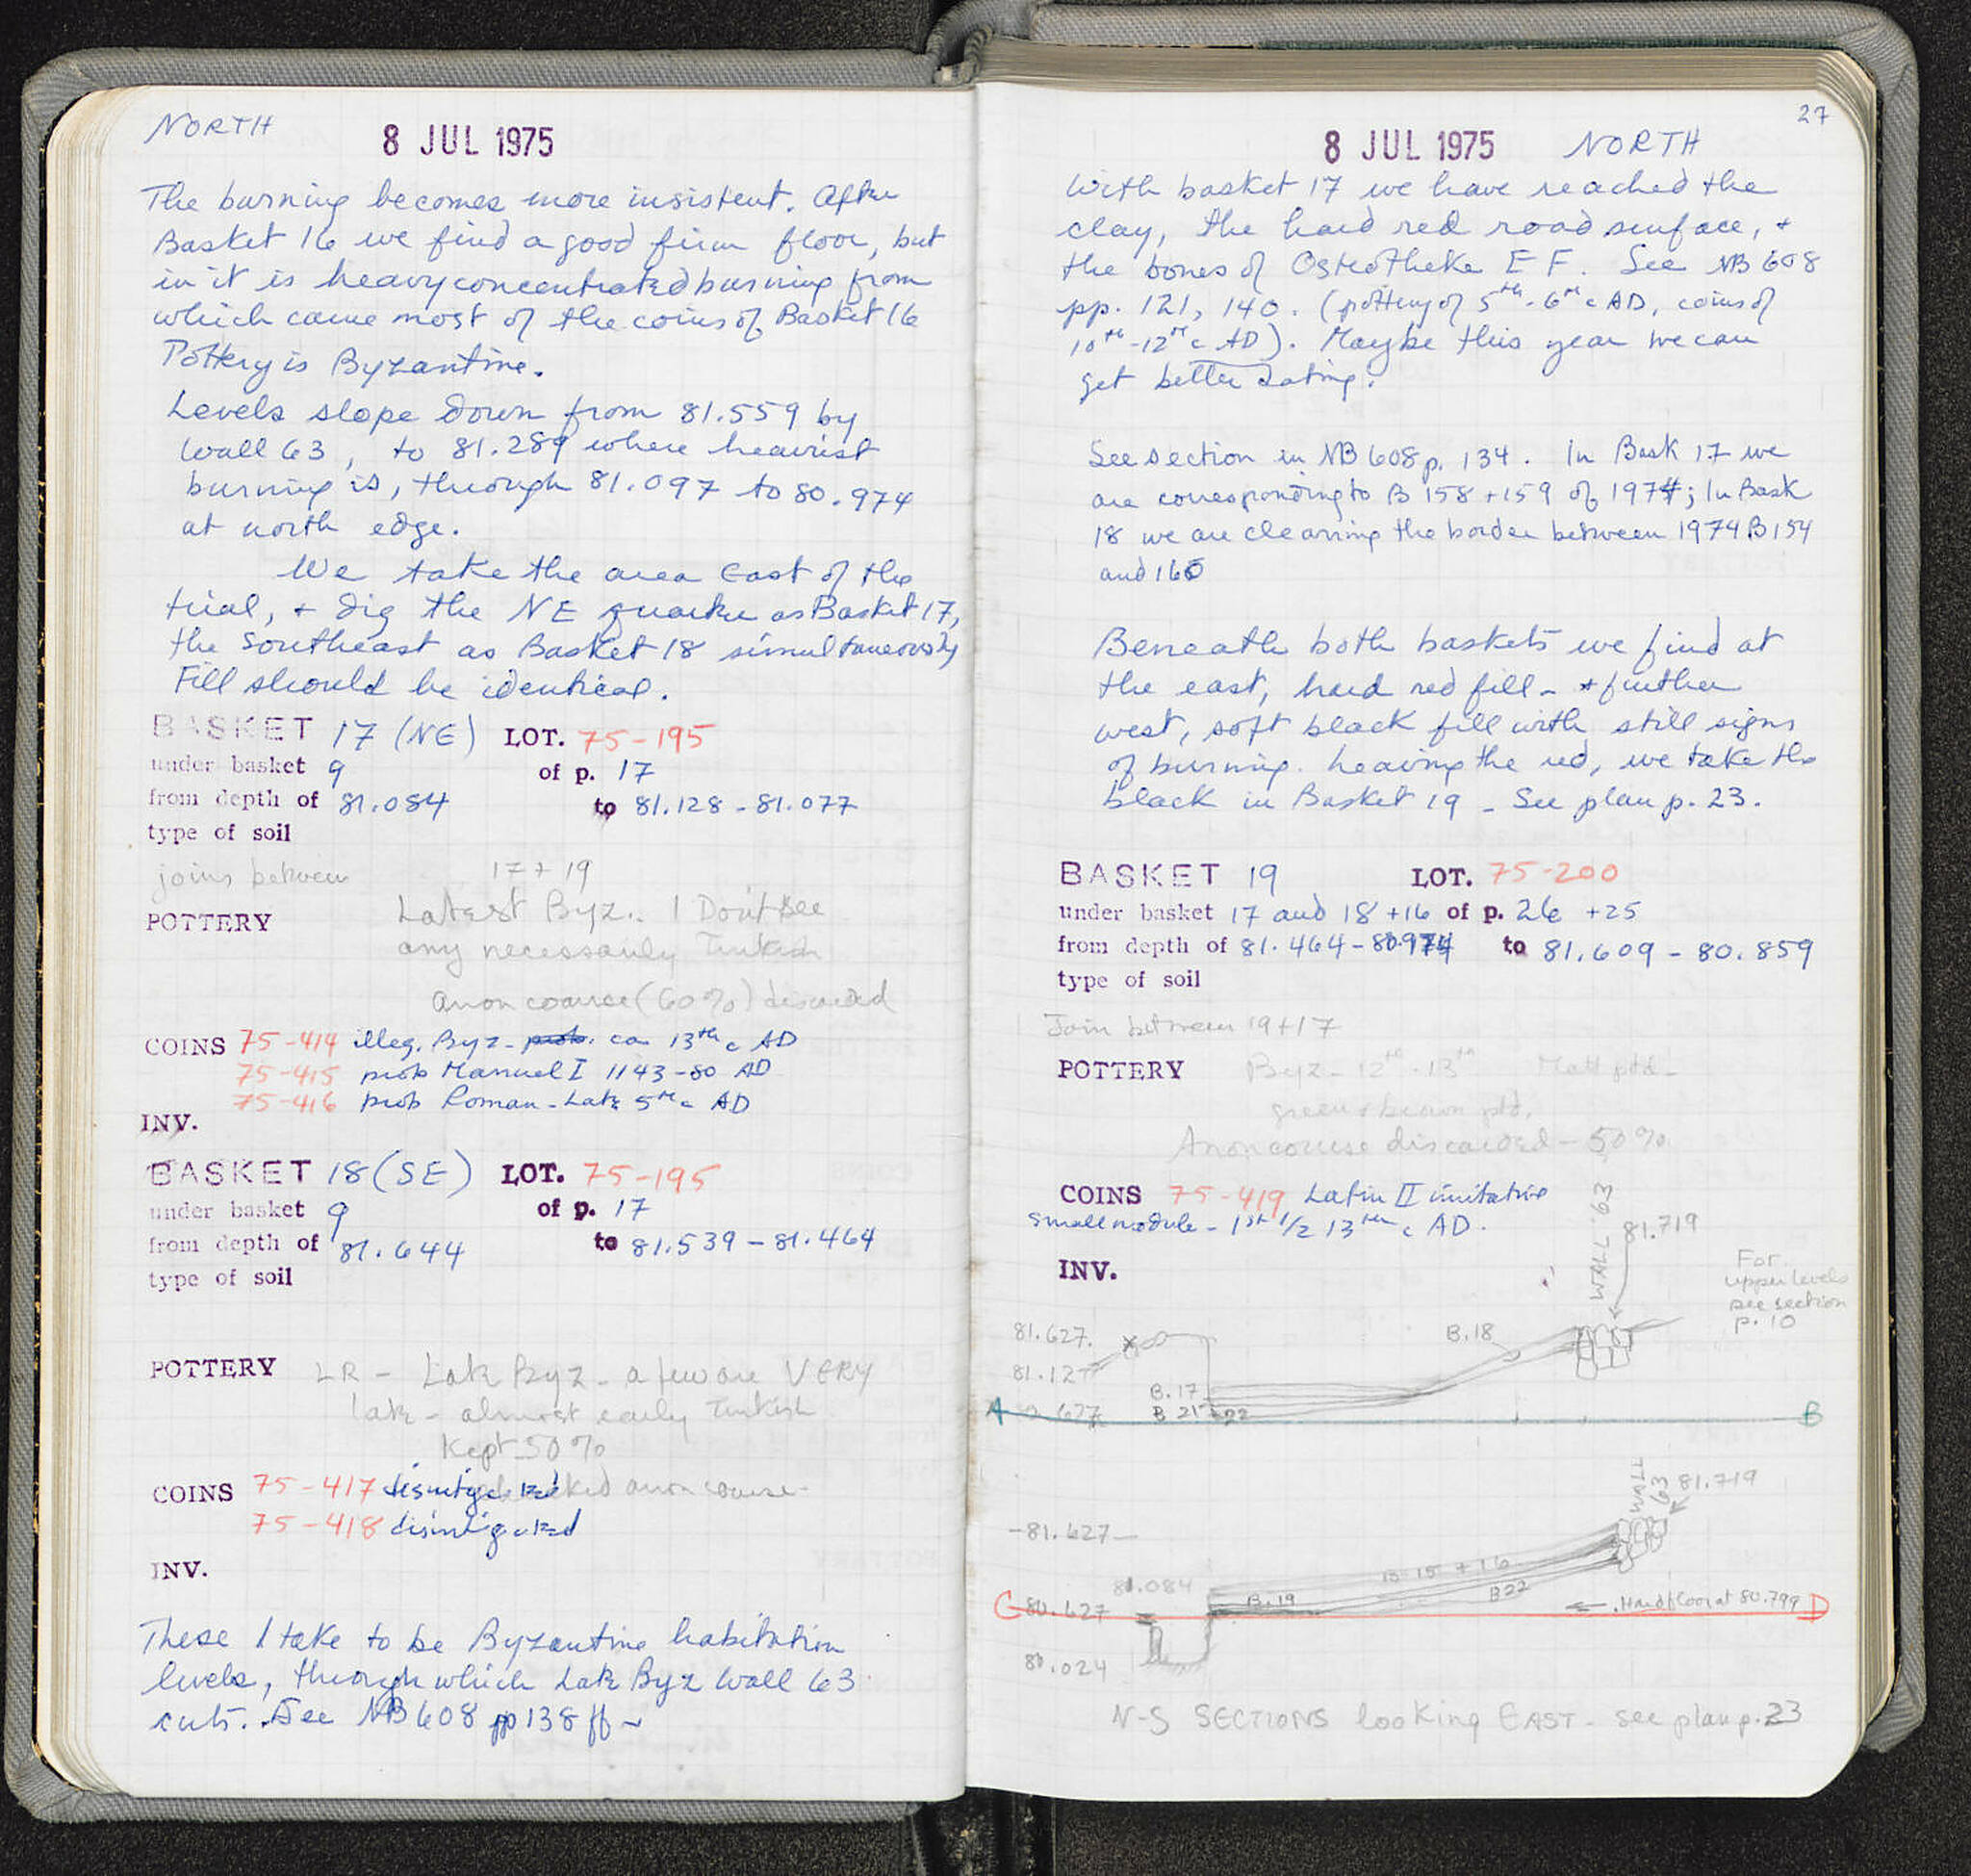 NORTH
8 JUL 1975
The burning becomes more insistent. After
Basket 16 we find a good firm floor, but
in it is heavy concentrated burning from
which came most of the coins of Basket 16
Pottery is Byzantine.
Levels slope down from 81.559 by
Wall 63, to 81.289 where heaviest
burning is, through 81.097 to 80.974
at north edge.
We take the area East of the
trial, + dig the NE quarter as Basket 17,
the Southeast as Basket 18 simultaneously
Fill should be identical.
BASKET 17 (NE) LOT. 75-195
under basket 9 of p. 17
from depth of 81.084 to 81.128 - 81.077
type of soil
joins between 17 + 19
POTTERY Latest Byz.. I Don't see
any necessarily Turkish
anon coarse (60%) discarded
COINS 75-414 illeg. Byz - prob. ca 13th c AD
75-415 prob Manuel I 1143-80 AD
75-416 prob Roman - Late 5th c AD
INV.
BASKET 18 (SE) LOT. 75-195
under basket 9 of p. 17
from depth of 81.644 to 81.539 - 81.464
type of soil
POTTERY LR - Late Byz - a few are VERY
late - almost early Turkish
Kept 50%
COINS 75-417 disintegrated anon coarse -
75-418 disintegrated
INV.
These I take to be Byzantine habitation
levels, through which Late Byz Wall 63
cuts. See NB 608 pp 138 ff ~
27
8 JUL 1975 NORTH
With basket 17 we have reached the
clay, the hard red road surface, +
the bones of Osteotheke E F. See NB 608
pp. 121, 140. (pottery of 5th - 6th c AD, coins of
10th - 12th c AD). Maybe this year we can
get better dating.
See section in NB 608 p. 134. In Bask 17 we
are corresponding to B 158 + 159 of 1974; In Bask
18 we are cleaning the border between 1974 B 154
and 160
Beneath both baskets we find at
the east, hard red fill - + further
west, soft black fill with still signs
of burning. Leaving the red, we take the
black in Basket 19 - See plan p. 23.
BASKET 19 LOT. 75-200
under basket 17 and 18 + 16 of p. 26 + 25
from depth of 81.464 - 80.974 to 81.609 - 80.859
type of soil
Join between 19 + 17
POTTERY Byz - 12th - 13th Matt ptd -
green + brown ptd.
Anon course discarded - 50%
COINS 75-419 Latin II imitative
small module - 1st 1/2 13th c AD.
INV.
WALL 63
81.719
For
upper levels
see section
p. 10
81.627.
B.18
81.127
B.17
B 21 + 22
A B
WALL 63 81.719
-81.627-
B 15 + 16
81.084
B.19
B22
C 80.627 Hard floor at 80.799 D
80.024
N-S SECTIONS looking EAST - see plan p. 23